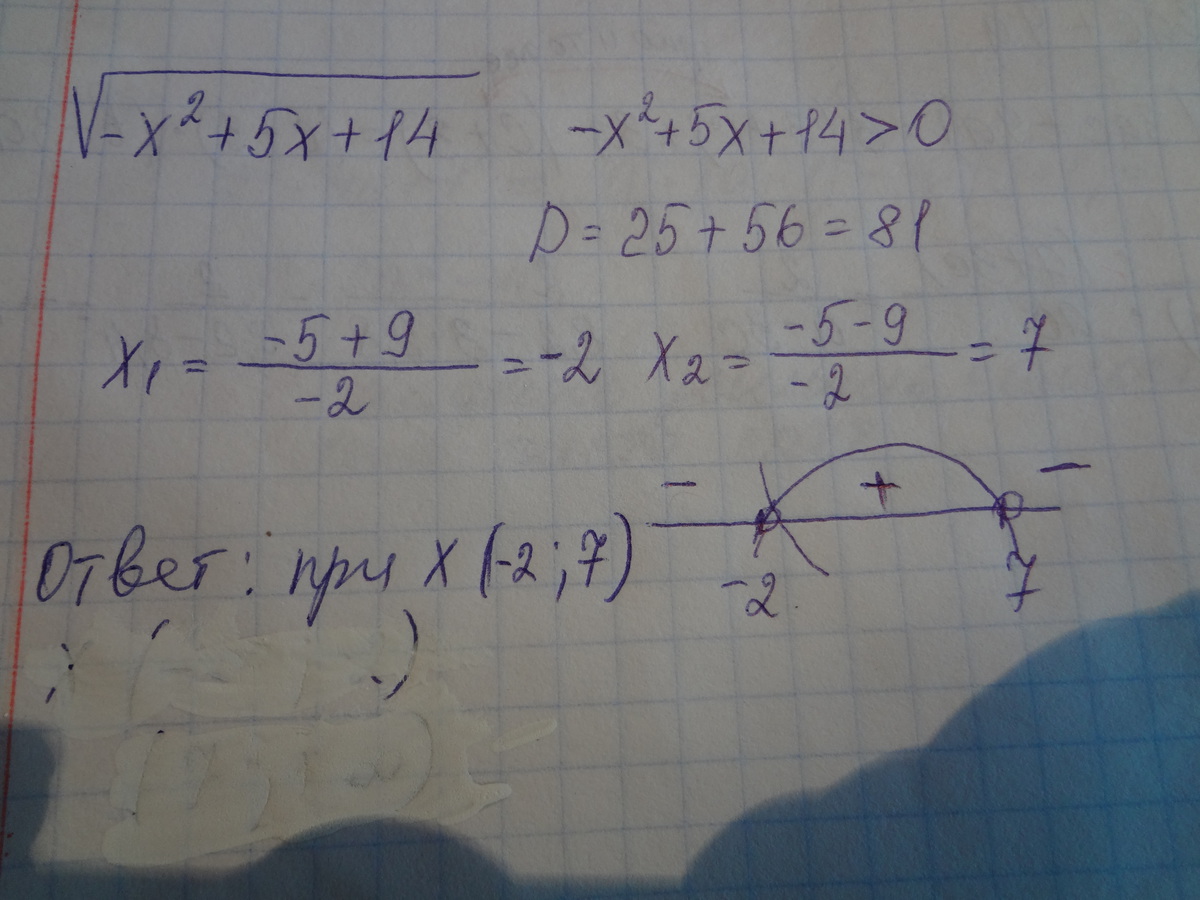 √-x²+5x+14 -x²+5x+14>0
D=25+56=81
x₁=(-5+9)/-2=-2 x₂=(-5-9)/-2=7
- + -
-2 7
Ответ: при x (-2;7)